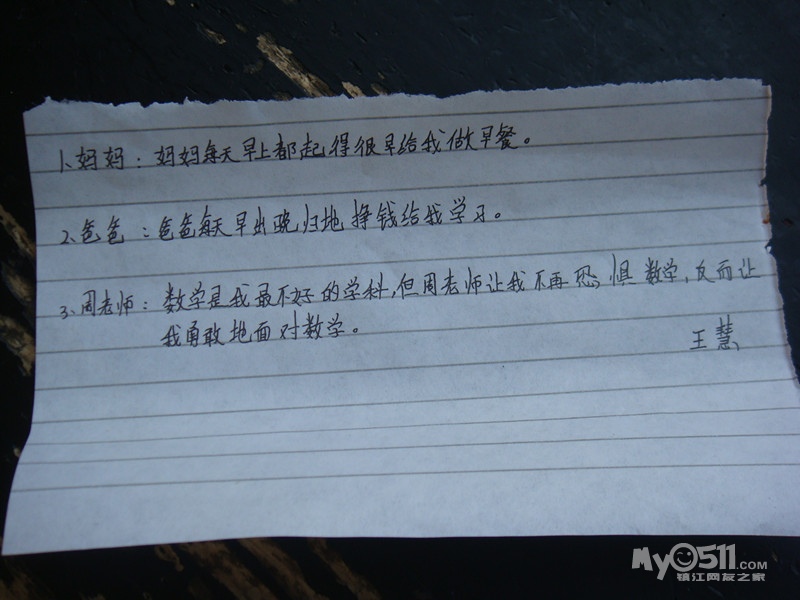 1、妈妈：妈妈每天早上都起得很早给我做早餐。
2、爸爸：爸爸每天早出晚归地挣钱给我学习。
3、周老师：数学是我最不好的学科，但周老师让我不再恐惧数学，反而让
我勇敢地面对数学。
王慧
My0511.com
镇江网友之家